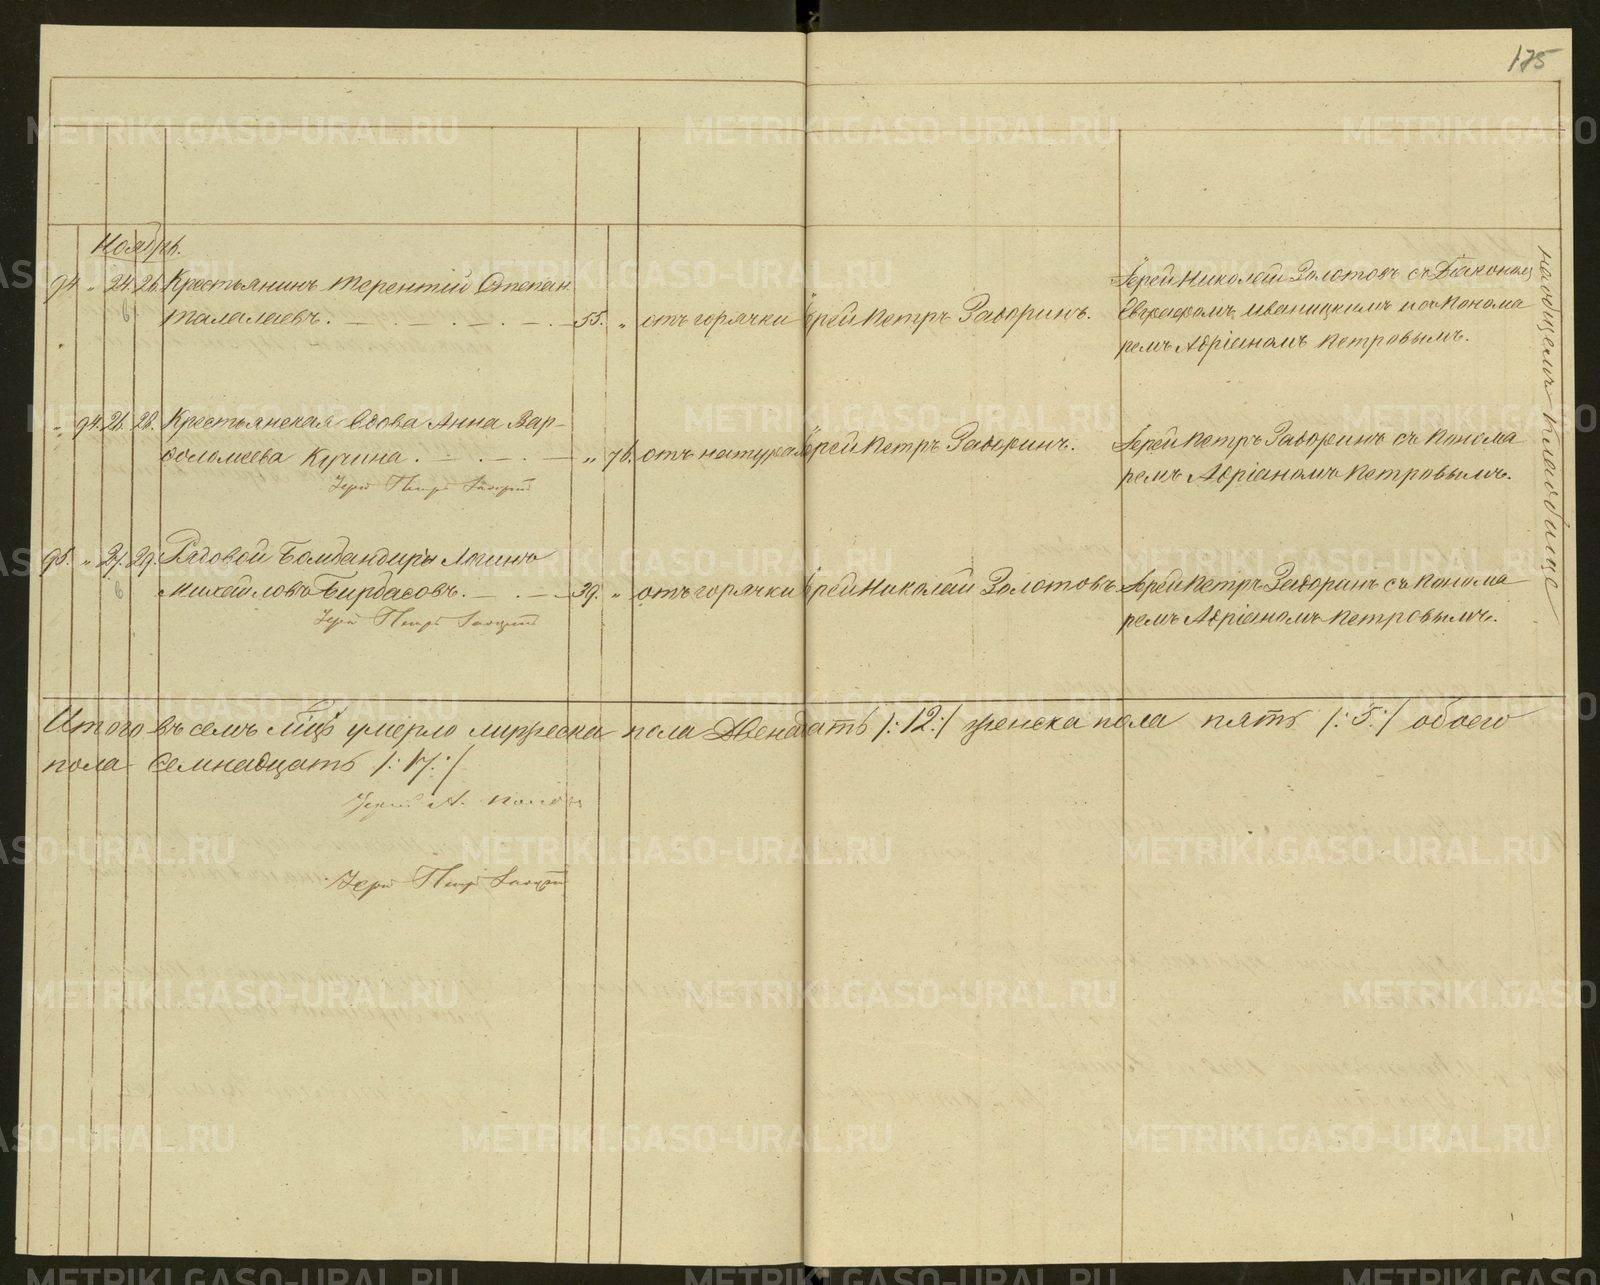 175
Ноябрь.
94. „ 24. 26. Крестьянинъ Терентій Степан.
Талалаевъ. 55. „ отъ горячки Іерей Петръ Заворинъ. Іерей Николай Золотовъ съ Діакономъ
6 Евграфомъ Иваницкимъ и съ Понома
ремъ Адріаномъ Петровымъ.
на общемъ кладбище
„ 94. 26. 28. Крестьянская вдова Анна Вар-
ѳоломеева Кучина. „ 76. отъ натуры Іерей Петръ Заворинъ. Іерей Петръ Заворинъ съ Понома
ремъ Адріаномъ Петровымъ.
Іерей Петръ Заворинъ
95. „ 27. 29. Рядовой Бомбандиръ
6 Михайловъ Бирдасовъ. 39. „ отъ горячки Іерей Николай Золотовъ. Іерей Петръ Заворинъ съ Понома
ремъ Адріаномъ Петровымъ.
Іерей Петръ Заворинъ
Итого въ семъ м-цѣ умерло мужеска пола Двенадцать /:12:/ женска пола пять /:5:/ обоего
пола семнадцать /:17:/
Іерей Н. Золотовъ
Іерей Петръ Заворинъ
METRIKI.GASO-URAL.RU